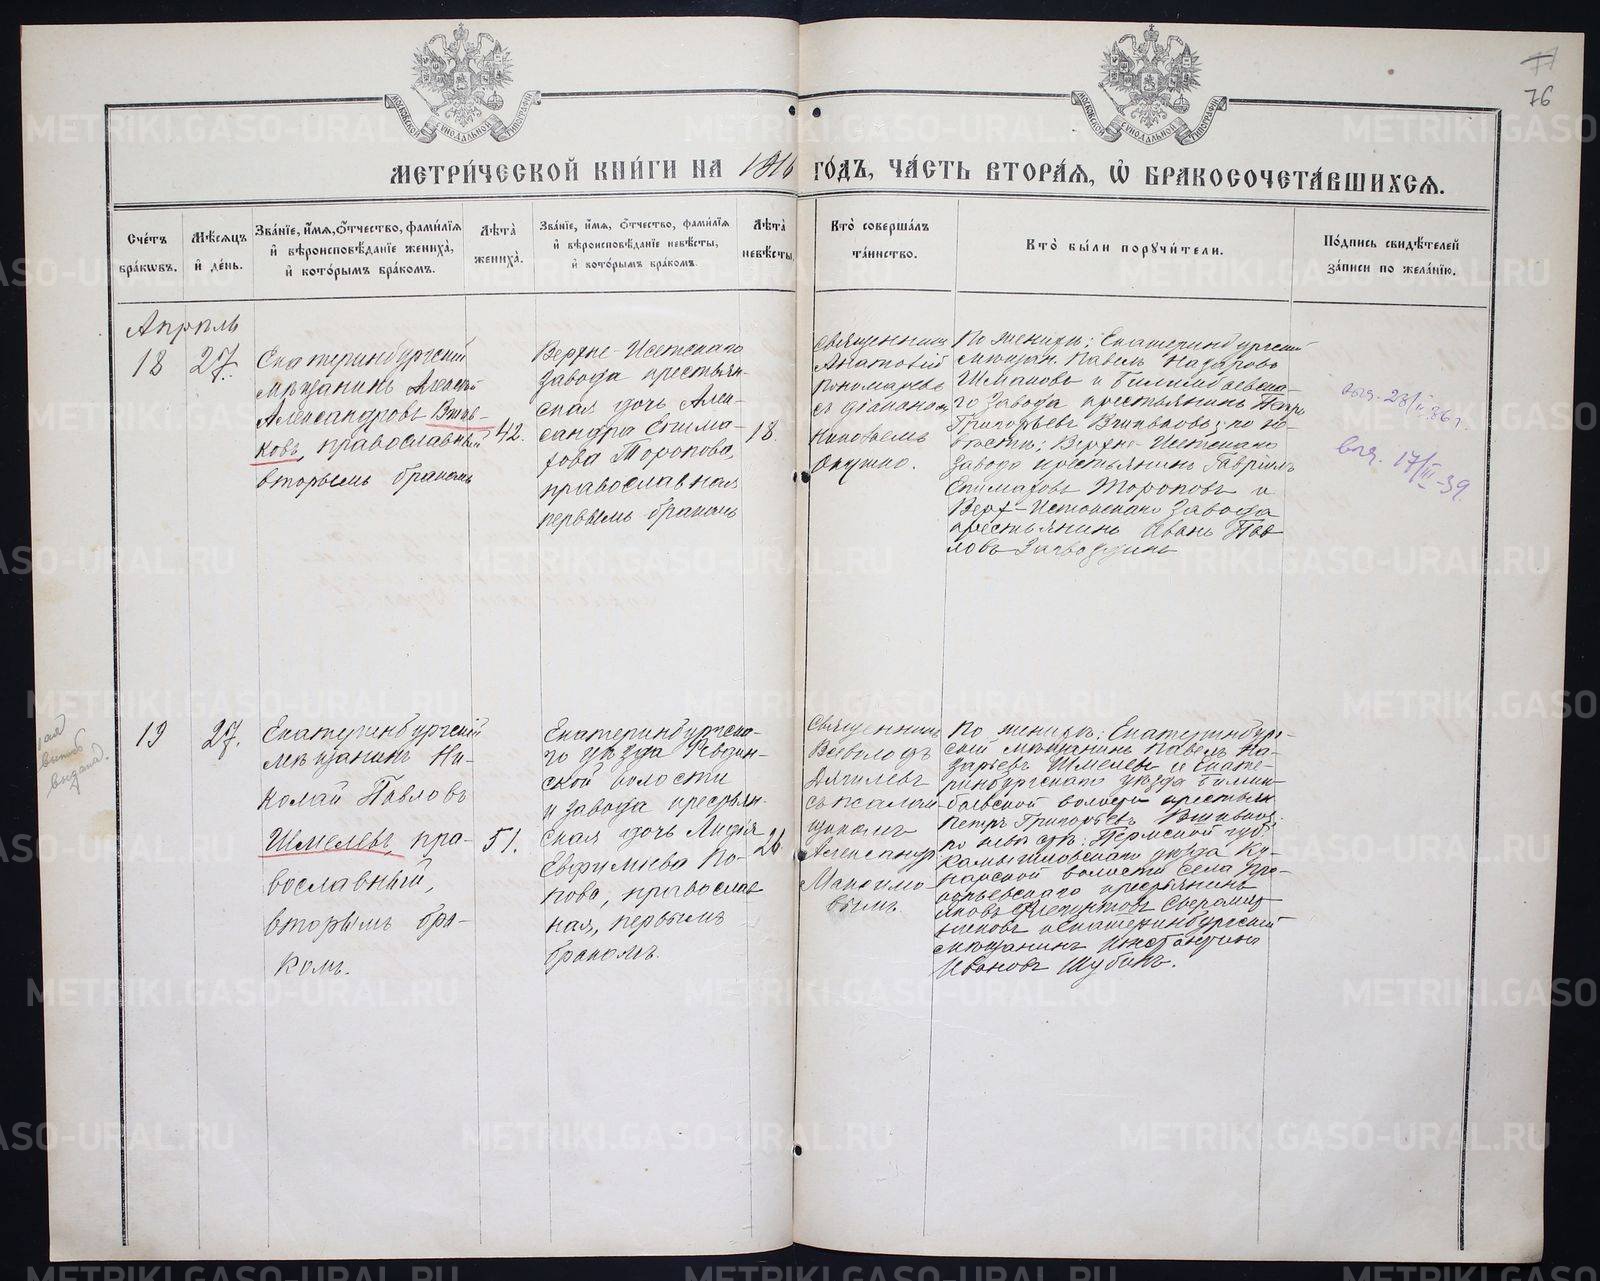 77
76
МОСКОВСКОЙ СѴНОДАЛЬНОЙ ТИПОГРАФІИ
МОСКОВСКОЙ СѴНОДАЛЬНОЙ ТИПОГРАФІИ
МЕТРИ́ЧЕСКОЙ КНИ́ГИ НА 1916 ГО́ДЪ, ЧА́СТЬ ВТОРА́Я, Ѽ БРАКОСОЧЕТА́ВШИХСЯ.
Сче́тъ
бра́кѡвъ.
Мѣ́сяцъ
и҆ де́нь.
Зва́нїе, и҆́мя, ѻ҆́тчество, фами́лїя
и҆ вѣроисповѣ́данїе жениха̀,
и҆ кото́рымъ бра́комъ.
Лѣ̑та
жениха̀.
Зва́нїе, и҆́мя, ѻ҆́тчество, фами́лїя
и҆ вѣроисповѣ́данїе невѣ́сты,
и҆ кото́рымъ бра́комъ.
Лѣ̑та
невѣ́сты.
Кто̀ соверша́лъ
та́инство.
Кто̀ бы́ли порꙋчи́тели.
По́дпись свидѣ́телей
за́писи по жела́нїю.
Апрѣль
18
27.
Екатеринбургскій
мѣщанинъ
Александровъ
ковъ, православный
вторымъ бракомъ
42.
Верхне-Исетскаго
завода крестьян-
ская дочь Алек-
сандра Епима-
хова Торопова,
православная
первымъ бракомъ
18.
Священникъ
Анатолій
Пономаревъ
съ діакономъ
По женихѣ: Екатеринбургскій
мѣщан. Павелъ Назаровъ
и Билимбаевска-
го завода крестьянинъ Петръ
Григорьевъ по не-
вѣстѣ: Верхне-Исетскаго
завода крестьянинъ Гавріилъ
Епимаховъ Тороповъ и
Верх-Исетскаго завода
крестьянинъ Иванъ Пав-
ловъ
выд. 23/II-36 г.
выд. 17/III-39
19
27.
Екатеринбургскій
мѣщанинъ Ни-
колай Павловъ
Шмелевъ, пра-
вославный,
вторымъ бра-
комъ.
51.
Екатеринбургска-
го уѣзда Ревдин-
ской волости
и завода крестьян-
ская дочь Лидія
Евфиміева По-
пова, православ-
ная, первымъ
бракомъ.
26
Священникъ
Всеволодъ
Дягилевъ
съ псалом-
щикомъ
Александр.
Максимо-
вымъ
По женихѣ: Екатеринбург-
скій мѣщанинъ Павелъ На-
заровъ Шмелевъ и Екате-
ринбургскаго уѣзда Билим-
баевской волости крестьян.
Петръ Григорьевъ
по невѣстѣ: Пермской губ.
Камышловскаго уѣзда Ку-
нарской волости села Про-
копьевскаго крестьянинъ
Яковъ
и Екатеринбургскій
мѣщанинъ Константинъ
Ивановъ Шубинъ.
выдана.
METRIKI.GASO-URAL.RU